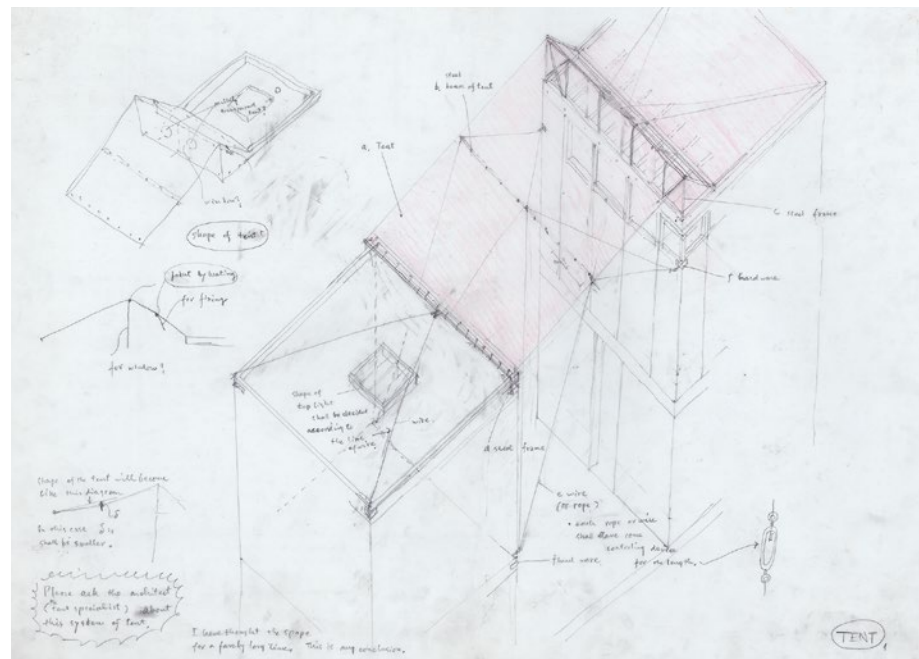 steel
b. beam of tent
a. Tent
window?
Shape of tent
for fixing
for window?
c. steel frame
f. hard wire
shape of
top light
shall be decided
according to
the line
of wire.
wire.
d. steel frame
e. wire
(or rope)
• each rope or wire
shall have some
controlling device
for the length.
hard wire
Shape of the tent will become
like this diagram
In this case
shall be smaller.
Please ask the architect
(Tent specialist) about
this system of tent.
I have thought the shape
for a fairly long time. This is my conclusion.
TENT